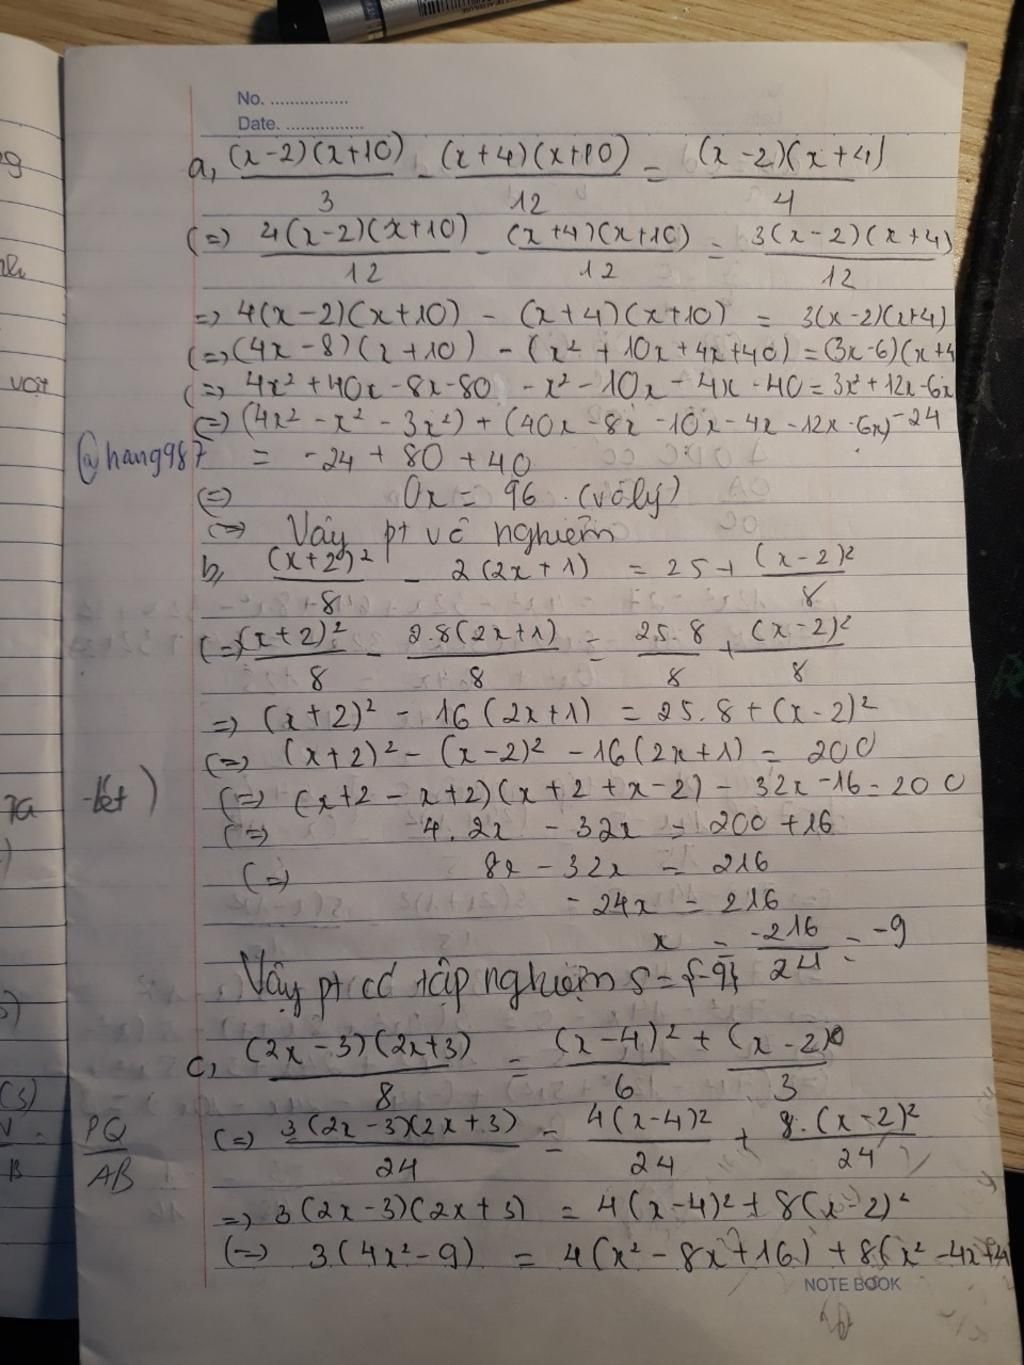 No. ................
Date. ................
a, (x-2)(x+10)/3 - (x+4)(x+10)/12 = (x-2)(x+4)/4
(=) 4(x-2)(x+10)/12 - (x+4)(x+10)/12 = 3(x-2)(x+4)/12
=> 4(x-2)(x+10) - (x+4)(x+10) = 3(x-2)(x+4)
(=) (4x-8)(x+10) - (x² + 10x + 4x + 40) = (3x-6)(x+4
(=) 4x² + 40x - 8x - 80 - x² - 10x - 4x - 40 = 3x² + 12x - 6x
(=) (4x² - x² - 3x²) + (40x - 8x - 10x - 4x - 12x - 6x) -24
@hang987 = -24 + 80 + 40
(=) 0x = 96 (vô lý)
(=) Vậy pt vô nghiệm
b, (x+2)²/8 - 2(2x+1) = 25 + (x-2)²/8
(=) (x+2)²/8 - 2.8(2x+1)/8 = 25.8/8 + (x-2)²/8
=> (x+2)² - 16(2x+1) = 25.8 + (x-2)²
(=) (x+2)² - (x-2)² - 16(2x+1) = 200
(=) (x+2 - x+2)(x+2 + x-2) - 32x - 16 = 200
(=) 4.2x - 32x = 200 + 16
(=) 8x - 32x = 216
-24x = 216
x = -216/24 = -9
Vậy pt có tập nghiệm S = {-9}
c, (2x-3)(2x+3)/8 = (x-4)²/6 + (x-2)²/3
(=) 3(2x-3)(2x+3)/24 = 4(x-4)²/24 + 8.(x-2)²/24
=> 3(2x-3)(2x+3) = 4(x-4)² + 8(x-2)²
(=) 3(4x²-9) = 4(x² - 8x + 16) + 8(x² - 4x + 4
NOTE BOOK
vạt
ra -tet)
PQ/AB